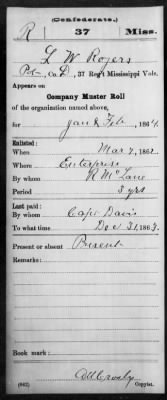 (Confederate.)
R 37 Miss.
L W Rogers
Pvt, Co. D, 37 Reg't Mississippi Vols.
Appears on
Company Muster Roll
of the organization named above,
for Jan & Feb, 1864.
Enlisted:
When Mar 7, 1862.
Where Enterprise
By whom R McLane
Period 3 yrs
Last paid:
By whom Capt Davis
To what time Dec 31, 1863.
Present or absent Present
Remarks:
Book mark:
(642) Copyist.